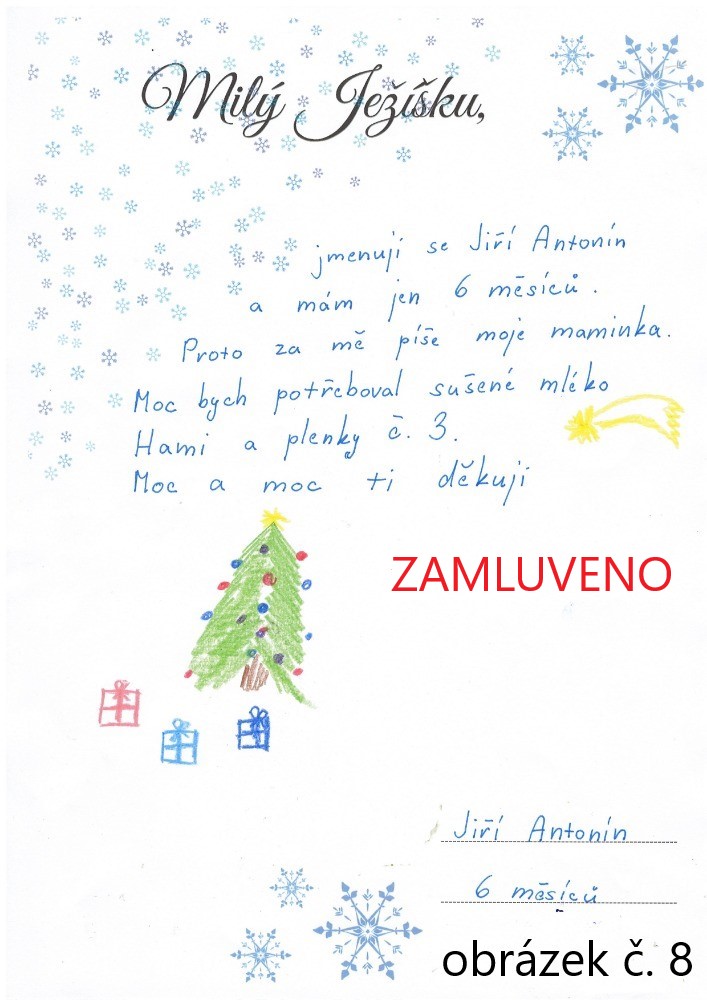 Milý Ježíšku,
jmenuji se Jiří Antonín
a mám jen 6 měsíců.
Proto za mě píše moje maminka.
Moc bych potřeboval sušené mléko
Hami a plenky č. 3.
Moc a moc ti děkuji
ZAMLUVENO
Jiří Antonín
6 měsíců
obrázek č. 8